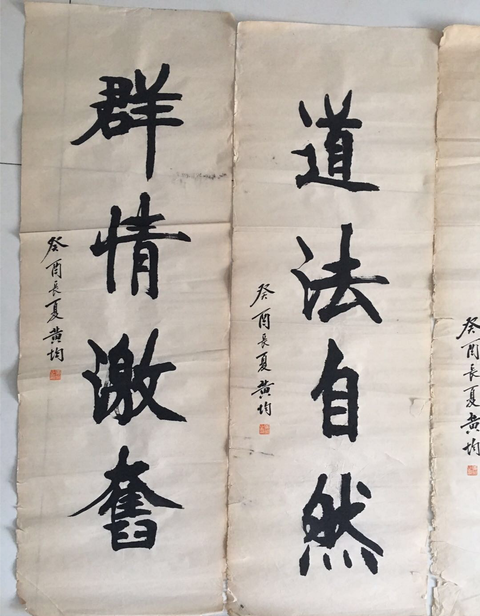 道法自然
癸酉長夏黄均
群情激奮
癸酉長夏黄均
癸酉長夏黄均